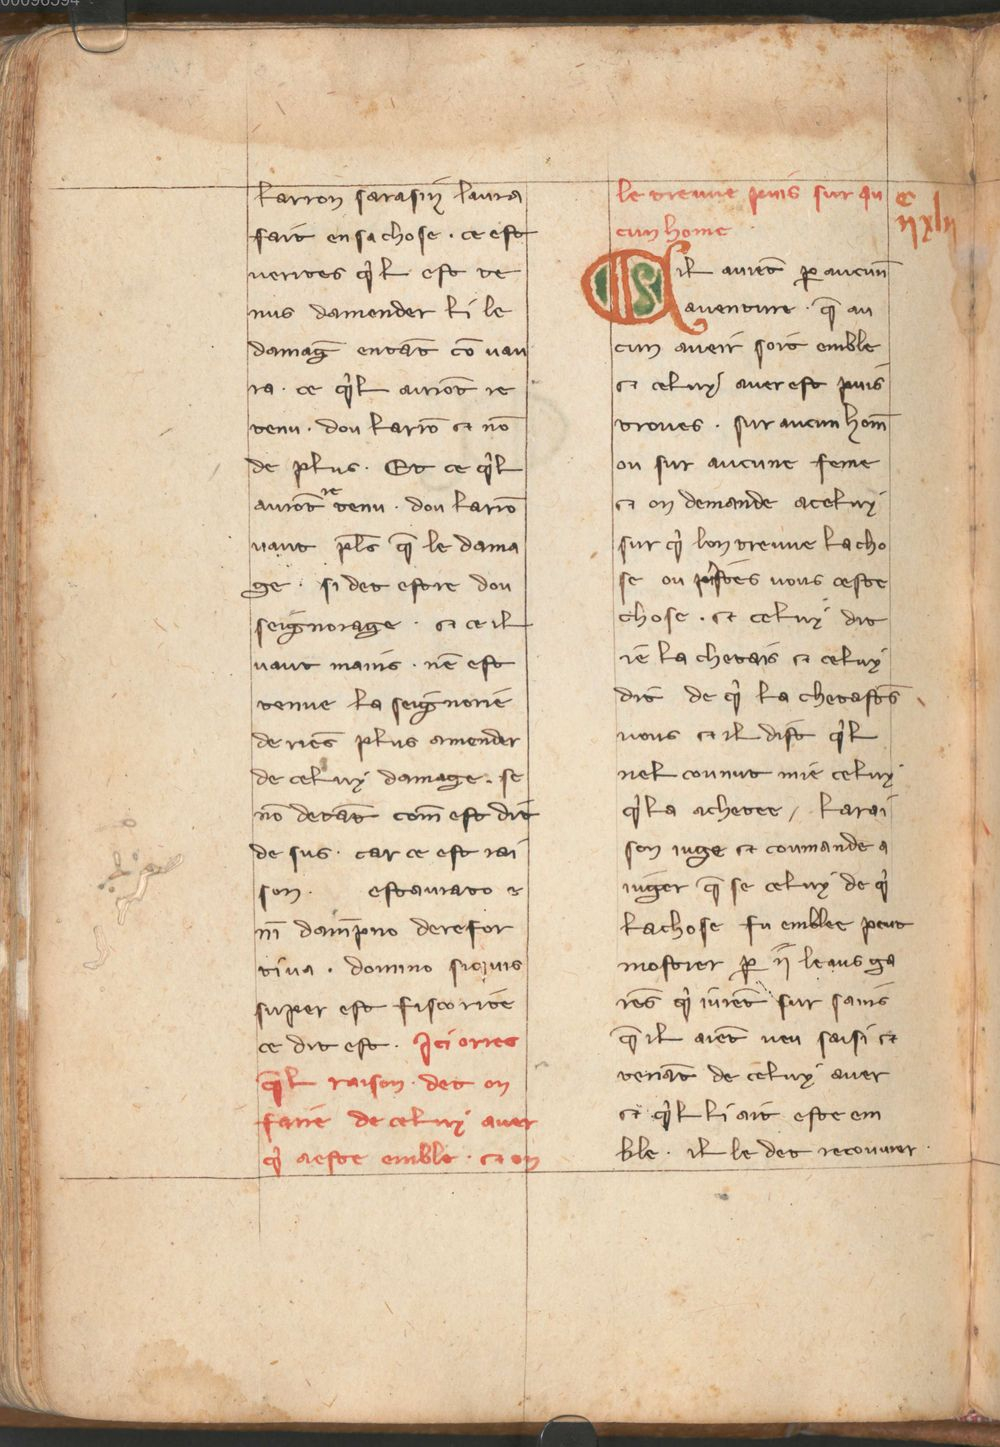 larron sarasin laura
fait en sa chose . ce est
verites q̍l est te
nus damender li le
damag̅ entãt cõ vau
ra . ce q̍l auront re
tenu . dou larrõ et nõ
de plus . Et ce q̍l
auront retenu . dou larrõ
vaut pl̅s q̅ le dama
ge . si det estre dou
seignorage . et ce il
vaut mains . nẽ est
tenue la seignorie
de riẽs plus amender
de celuy damage . se
nõ detãt com̅ est dit
de sus . car ce est rai
son . estaurato
dam̅pno derefor
tiua . domino siquis
super est fisco rite
ce dit est . Ici orres
q̅l raison . det on
faire de celuy auer
q̍ a este emble . et on
le treuue puis sur au
cun home
c
iixlii
Sil auiẽt p̱ aucun
auenture . q̅ au
cun aueir soit emble
et celuy auer est puis
troues . sur aucun hom̅
ou sur aucune feme
et on demande a celuy
sur q̍ lon treuue la cho
se ou preistes vous ceste
chose . et celuy dit
ie la chetais et celuy
dit de q̍ la chetastes
vous et il dist q̍l
nel connut mie celuy
q̍ la achetee / La rai
son iuge et coumande a
iuger q̅ se celuy de q̍
la chose fu emblee peut
mostrer p̱ ii leaus ga
rẽs q̍ iurẽt sur sains
q̅ il aiẽt veu saisi et
tenãt de celuy auer
et q̍l li ait este em
ble . il le det recouurer .